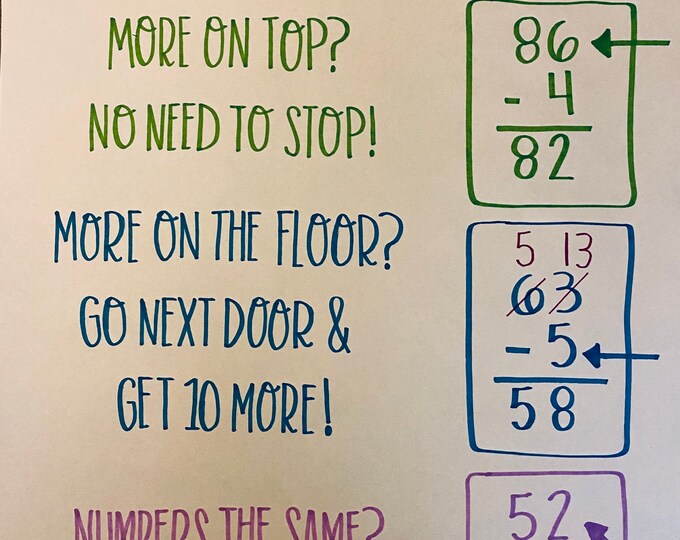 MORE ON TOP?
NO NEED TO STOP!
86
- 4
82
MORE ON THE FLOOR?
GO NEXT DOOR &
GET 10 MORE!
5 13
63
- 5
58
NUMBERS THE SAME?
52